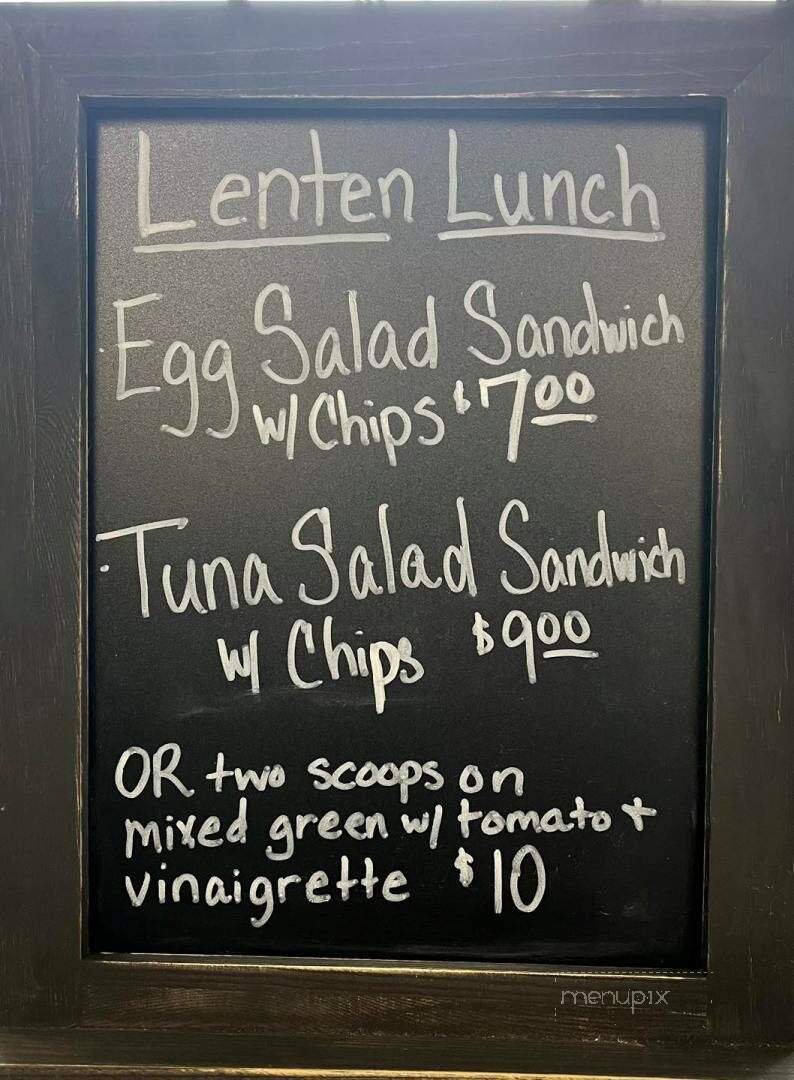 Lenten Lunch
Egg Salad Sandwich
w/ Chips $7.00
Tuna Salad Sandwich
w/ Chips $9.00
OR two scoops on
mixed green w/ tomato +
vinaigrette $10
menupix